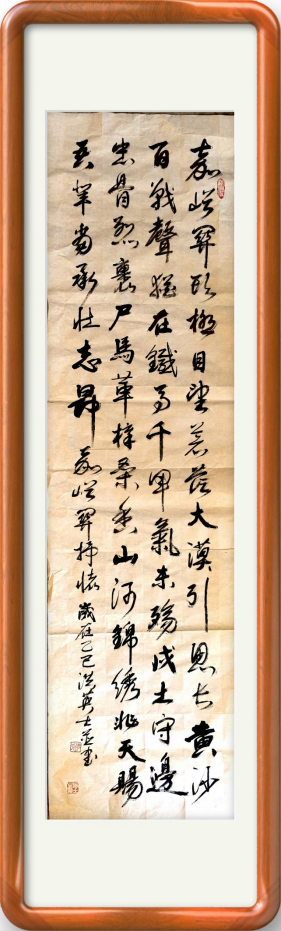 嘉峪關頭極目望蒼茫大漠引思長黃沙
百戰聲猶在鐵馬千甲氣未殤戍土守邊
忠骨烈裹尸馬革梓桑香山河錦繡非天賜
吾輩當承壯志昂 嘉峪關抒懷 歲在乙巳洪英士並書